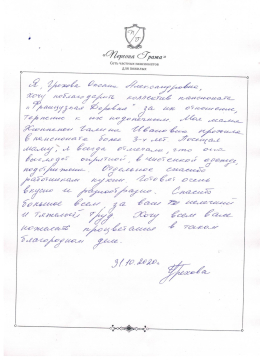 «Первая Грань»
Сеть частных пансионатов
для пожилых
Я, Грехова Оксана Александровна,
хочу поблагодарить коллектив пансионата
"Французская Деревня" за их отношение,
терпение к их подопечным. Моя мама
Галина Ивановна прожила
в пансионате более 3-х лет. Посещая
маму, я всегда отмечала, что она
выглядит опрятной, в чистенькой одежде,
подстрижена. Отдельное спасибо
работникам кухни. Готовят очень
вкусно и разнообразно. Спасибо
большое всем, за ваш нелегкий
и тяжелый труд. Хочу всем вам
пожелать процветания в таком
благородном деле.
31.10.2020г.
Грехова